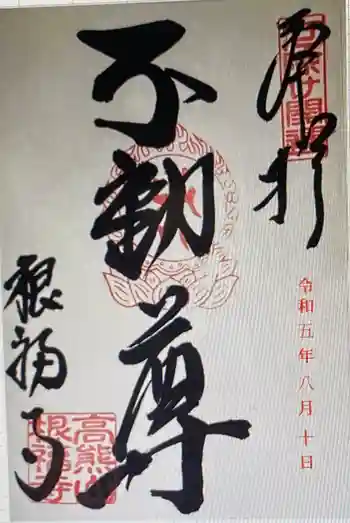 奉拝
令和五年八月十日
不動尊
根福寺
高熊山
根福寺